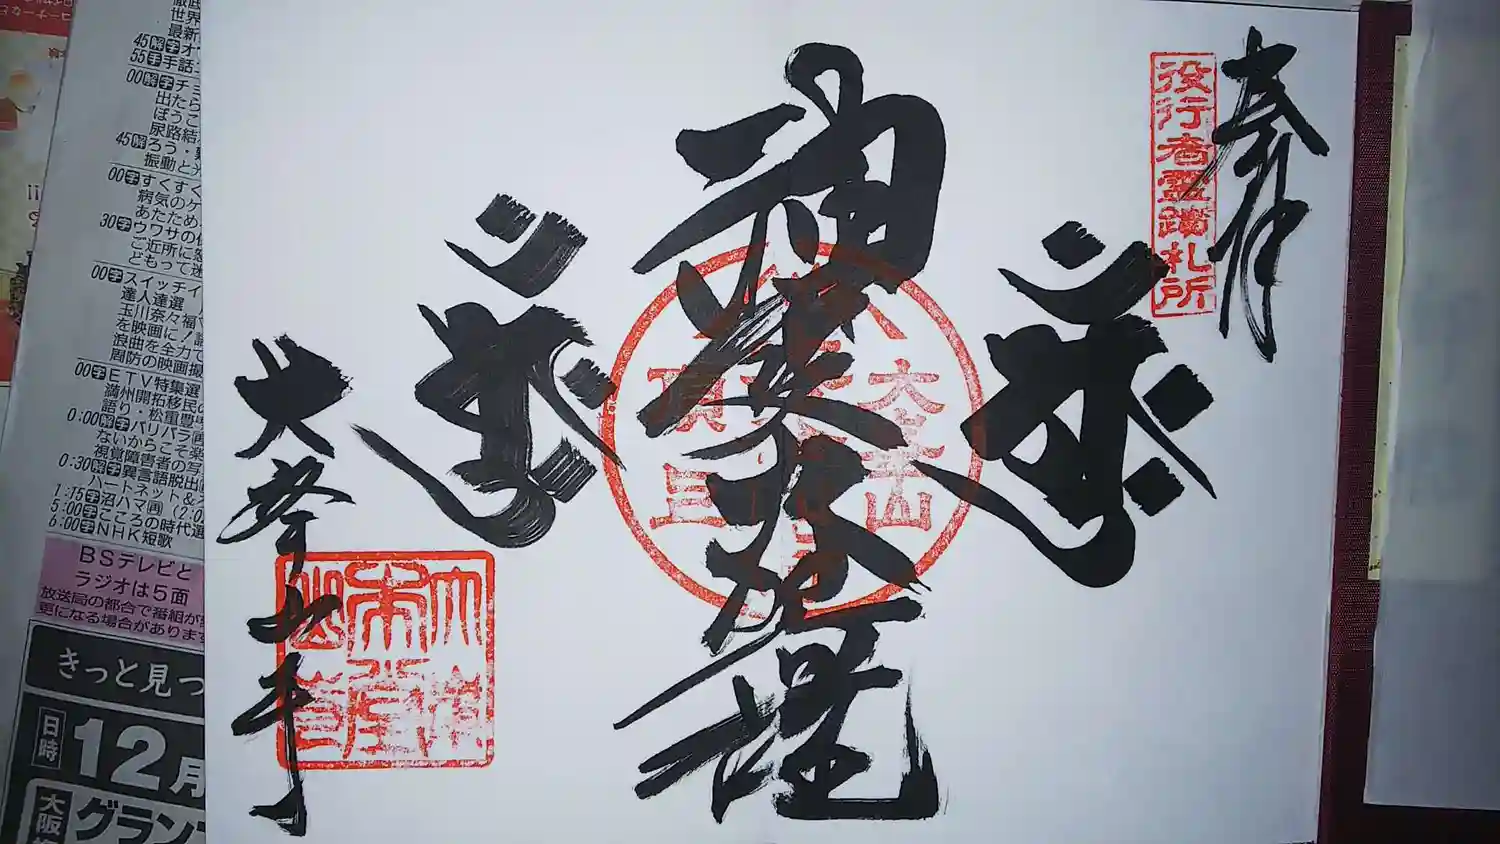 奉拝
役行者霊蹟札所
神変大菩薩
大峯山
頂上
大峯山寺
大峯山寺本堂
世界
最新
45解字オ
55手手話
00解字チ
出たら
ぼうこ
尿路結
45解ろう・
振動と
00字すくすく
病気のケ
あたため
30字ウワサの
ご近所に
どもって迷
00字スイッチイ
達人達選
玉川奈々福
を映画に!
浪曲を全力で
周防の映画撮
00字ETV特集選
満州開拓移民の
語り・松重豊
0:00解字バリバラ画
ないからこそ楽
視覚障害者の写
0:30解字異言語脱出
ハートネット&
1:15字沼ハマ画(2.0
5:00字こころの時代選
6:00字NHK短歌
BSテレビと
ラジオは5面
放送局の都合で番組が変
更になる場合があります
きっと見つ
日時
12月
大阪
グラン